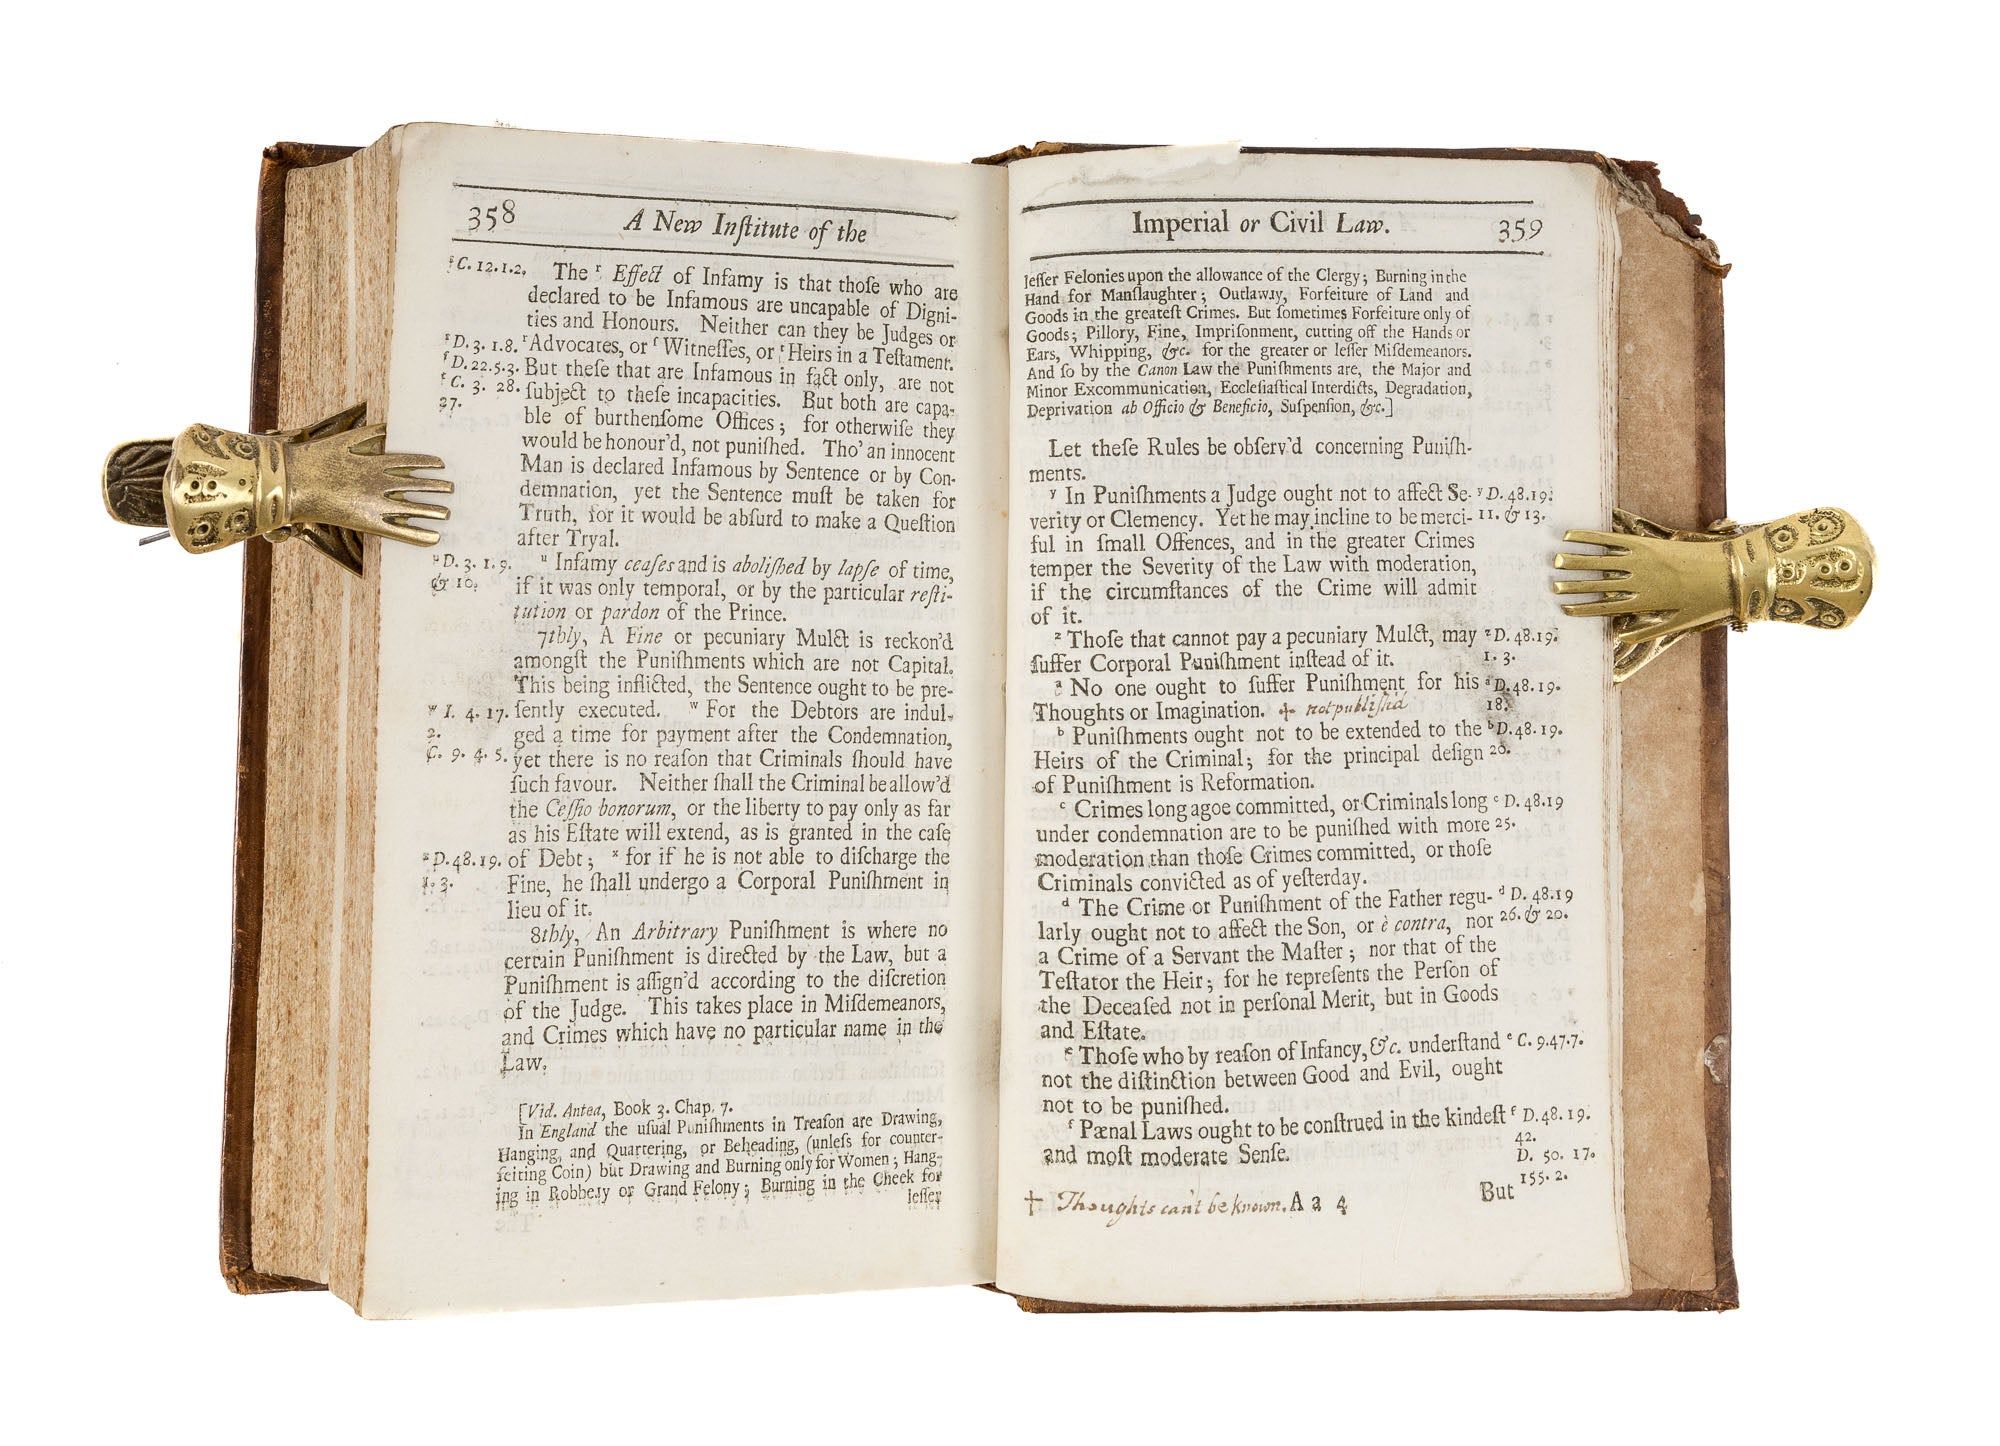 358 A New Inſtitute of the
ˢC. 12.1.2. The ʳ Effect of Infamy is that thoſe who are
declared to be Infamous are uncapable of Digni-
ties and Honours. Neither can they be Judges or
ʳD. 3. 1.8. ʳAdvocates, or ſ Witneſſes, or ᵗ Heirs in a Teſtament.
ſD. 22.5.3. But theſe that are Infamous in fact only, are not
ᵗC. 3. 28. ſubject to theſe incapacities. But both are capa-
27. ble of burthenſome Offices; for otherwiſe they
would be honour'd, not puniſhed. Tho' an innocent
Man is declared Infamous by Sentence or by Con-
demnation, yet the Sentence muſt be taken for
Truth, for it would be abſurd to make a Queſtion
after Tryal.
ᵘD. 3. 1. 9. ᵘ Infamy ceaſes and is aboliſhed by lapſe of time,
& 10. if it was only temporal, or by the particular reſti-
tution or pardon of the Prince.
7thly, A Fine or pecuniary Mulct is reckon'd
amongſt the Puniſhments which are not Capital.
This being inflicted, the Sentence ought to be pre-
ʷ I. 4. 17. ſently executed. ʷ For the Debtors are indul-
2. ged a time for payment after the Condemnation,
C. 9. 4. 5. yet there is no reaſon that Criminals ſhould have
ſuch favour. Neither ſhall the Criminal be allow'd
the Ceſſio bonorum, or the liberty to pay only as far
as his Eſtate will extend, as is granted in the caſe
ˣD. 48. 19. of Debt; ˣ for if he is not able to diſcharge the
1. 3. Fine, he ſhall undergo a Corporal Puniſhment in
lieu of it.
8thly, An Arbitrary Puniſhment is where no
certain Puniſhment is directed by the Law, but a
Puniſhment is aſſign'd according to the diſcretion
of the Judge. This takes place in Miſdemeanors,
and Crimes which have no particular name in the
Law.
[Vid. Antea, Book 3. Chap. 7.
In England the uſual Puniſhments in Treaſon are Drawing,
Hanging, and Quartering, or Beheading, (unleſs for counter-
feiting Coin) but Drawing and Burning only for Women; Hang-
ing in Robbery or Grand Felony; Burning in the Cheek for
leſſer
Imperial or Civil Law. 359
leſſer Felonies upon the allowance of the Clergy; Burning in the
Hand for Manſlaughter; Outlawry, Forfeiture of Land and
Goods in the greateſt Crimes. But ſometimes Forfeiture only of
Goods; Pillory, Fine, Impriſonment, cutting off the Hands or
Ears, Whipping, &c. for the greater or leſſer Miſdemeanors.
And ſo by the Canon Law the Puniſhments are, the Major and
Minor Excommunication, Eccleſiaſtical Interdicts, Degradation,
Deprivation ab Officio & Beneficio, Suſpenſion, &c.]
Let theſe Rules be obſerv'd concerning Puniſh-
ments.
ʸ In Puniſhments a Judge ought not to affect Se- ʸ D. 48.19.
verity or Clemency. Yet he may incline to be merci- 11. & 13.
ful in ſmall Offences, and in the greater Crimes
temper the Severity of the Law with moderation,
if the circumſtances of the Crime will admit
of it.
ᶻ Thoſe that cannot pay a pecuniary Mulct, may ᶻ D. 48.19.
ſuffer Corporal Puniſhment inſtead of it. 1. 3.
ᵃ No one ought to ſuffer Puniſhment for his ᵃ D.48.19.
Thoughts or Imagination. ☩ not publiſh'd 18.
ᵇ Puniſhments ought not to be extended to the ᵇ D.48.19.
Heirs of the Criminal; for the principal deſign 20.
of Puniſhment is Reformation.
ᶜ Crimes long agoe committed, or Criminals long ᶜ D. 48.19
under condemnation are to be puniſhed with more 25.
moderation than thoſe Crimes committed, or thoſe
Criminals convicted as of yeſterday.
ᵈ The Crime or Puniſhment of the Father regu- ᵈ D. 48.19
larly ought not to affect the Son, or è contra, nor 26. & 20.
a Crime of a Servant the Maſter; nor that of the
Teſtator the Heir; for he repreſents the Perſon of
the Deceaſed not in perſonal Merit, but in Goods
and Eſtate.
ᵉ Thoſe who by reaſon of Infancy, &c. underſtand ᵉ C. 9.47.7.
not the diſtinction between Good and Evil, ought
not to be puniſhed.
ᶠ Pænal Laws ought to be conſtrued in the kindeſt ᶠ D.48.19.
42.
and moſt moderate Senſe. D. 50. 17.
155. 2.
But
☩ Thoughts can't be known. A a 4